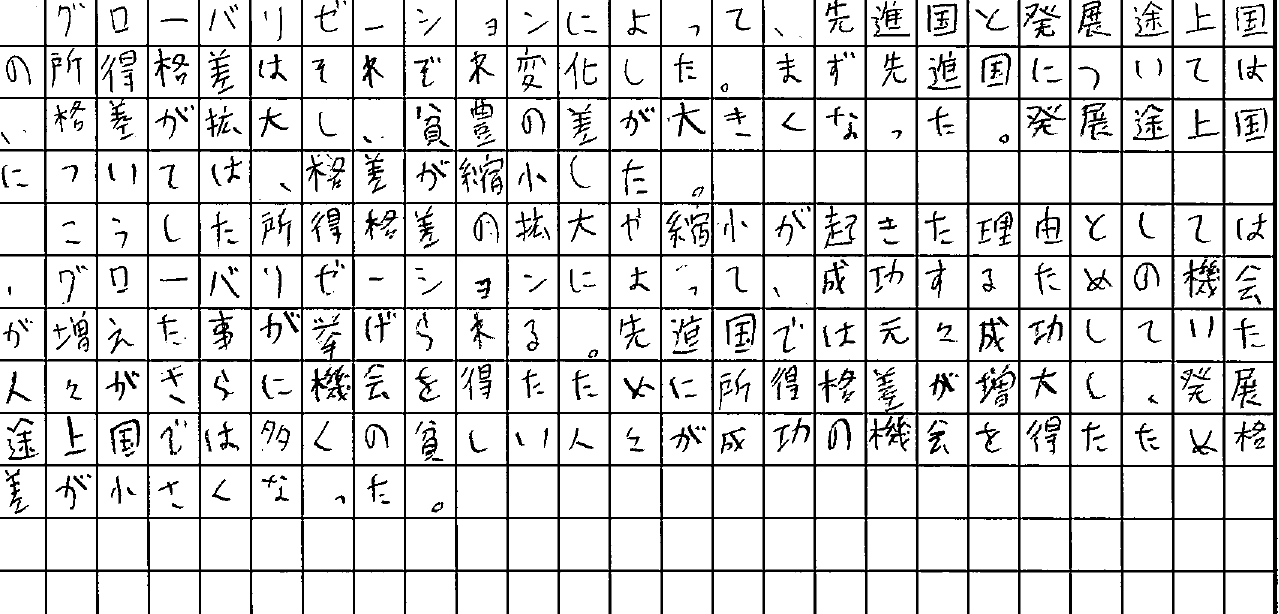 グローバリゼーションによって、先進国と発展途上国
の所得格差はそれぞれ変化した。まず先進国については
、格差が拡大し、貧豊の差が大きくなった。発展途上国
については、格差が縮小した。
こうした所得格差の拡大や縮小が起きた理由としては
、グローバリゼーションによって、成功するための機会
が増えた事が挙げられる。先進国では元々成功していた
人々がさらに機会を得たために所得格差が増大し、発展
途上国では多くの貧しい人々が成功の機会を得たため格
差が小さくなった。